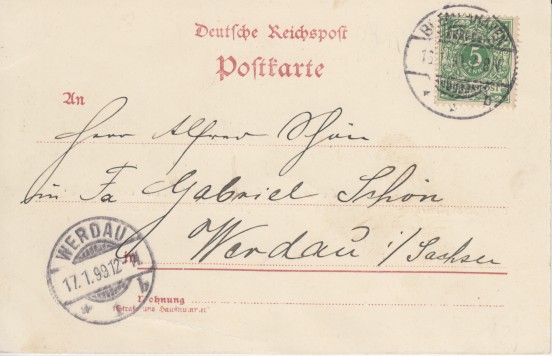 Deutsche Reichspost
Postkarte
5
An
Herr Alfred Schön
in Fa Gabriel Schön
Werdau i/Sachsen
in
WERDAU
17.1.99.12-
b
b
Wohnung
(Straße und Hausnummer)